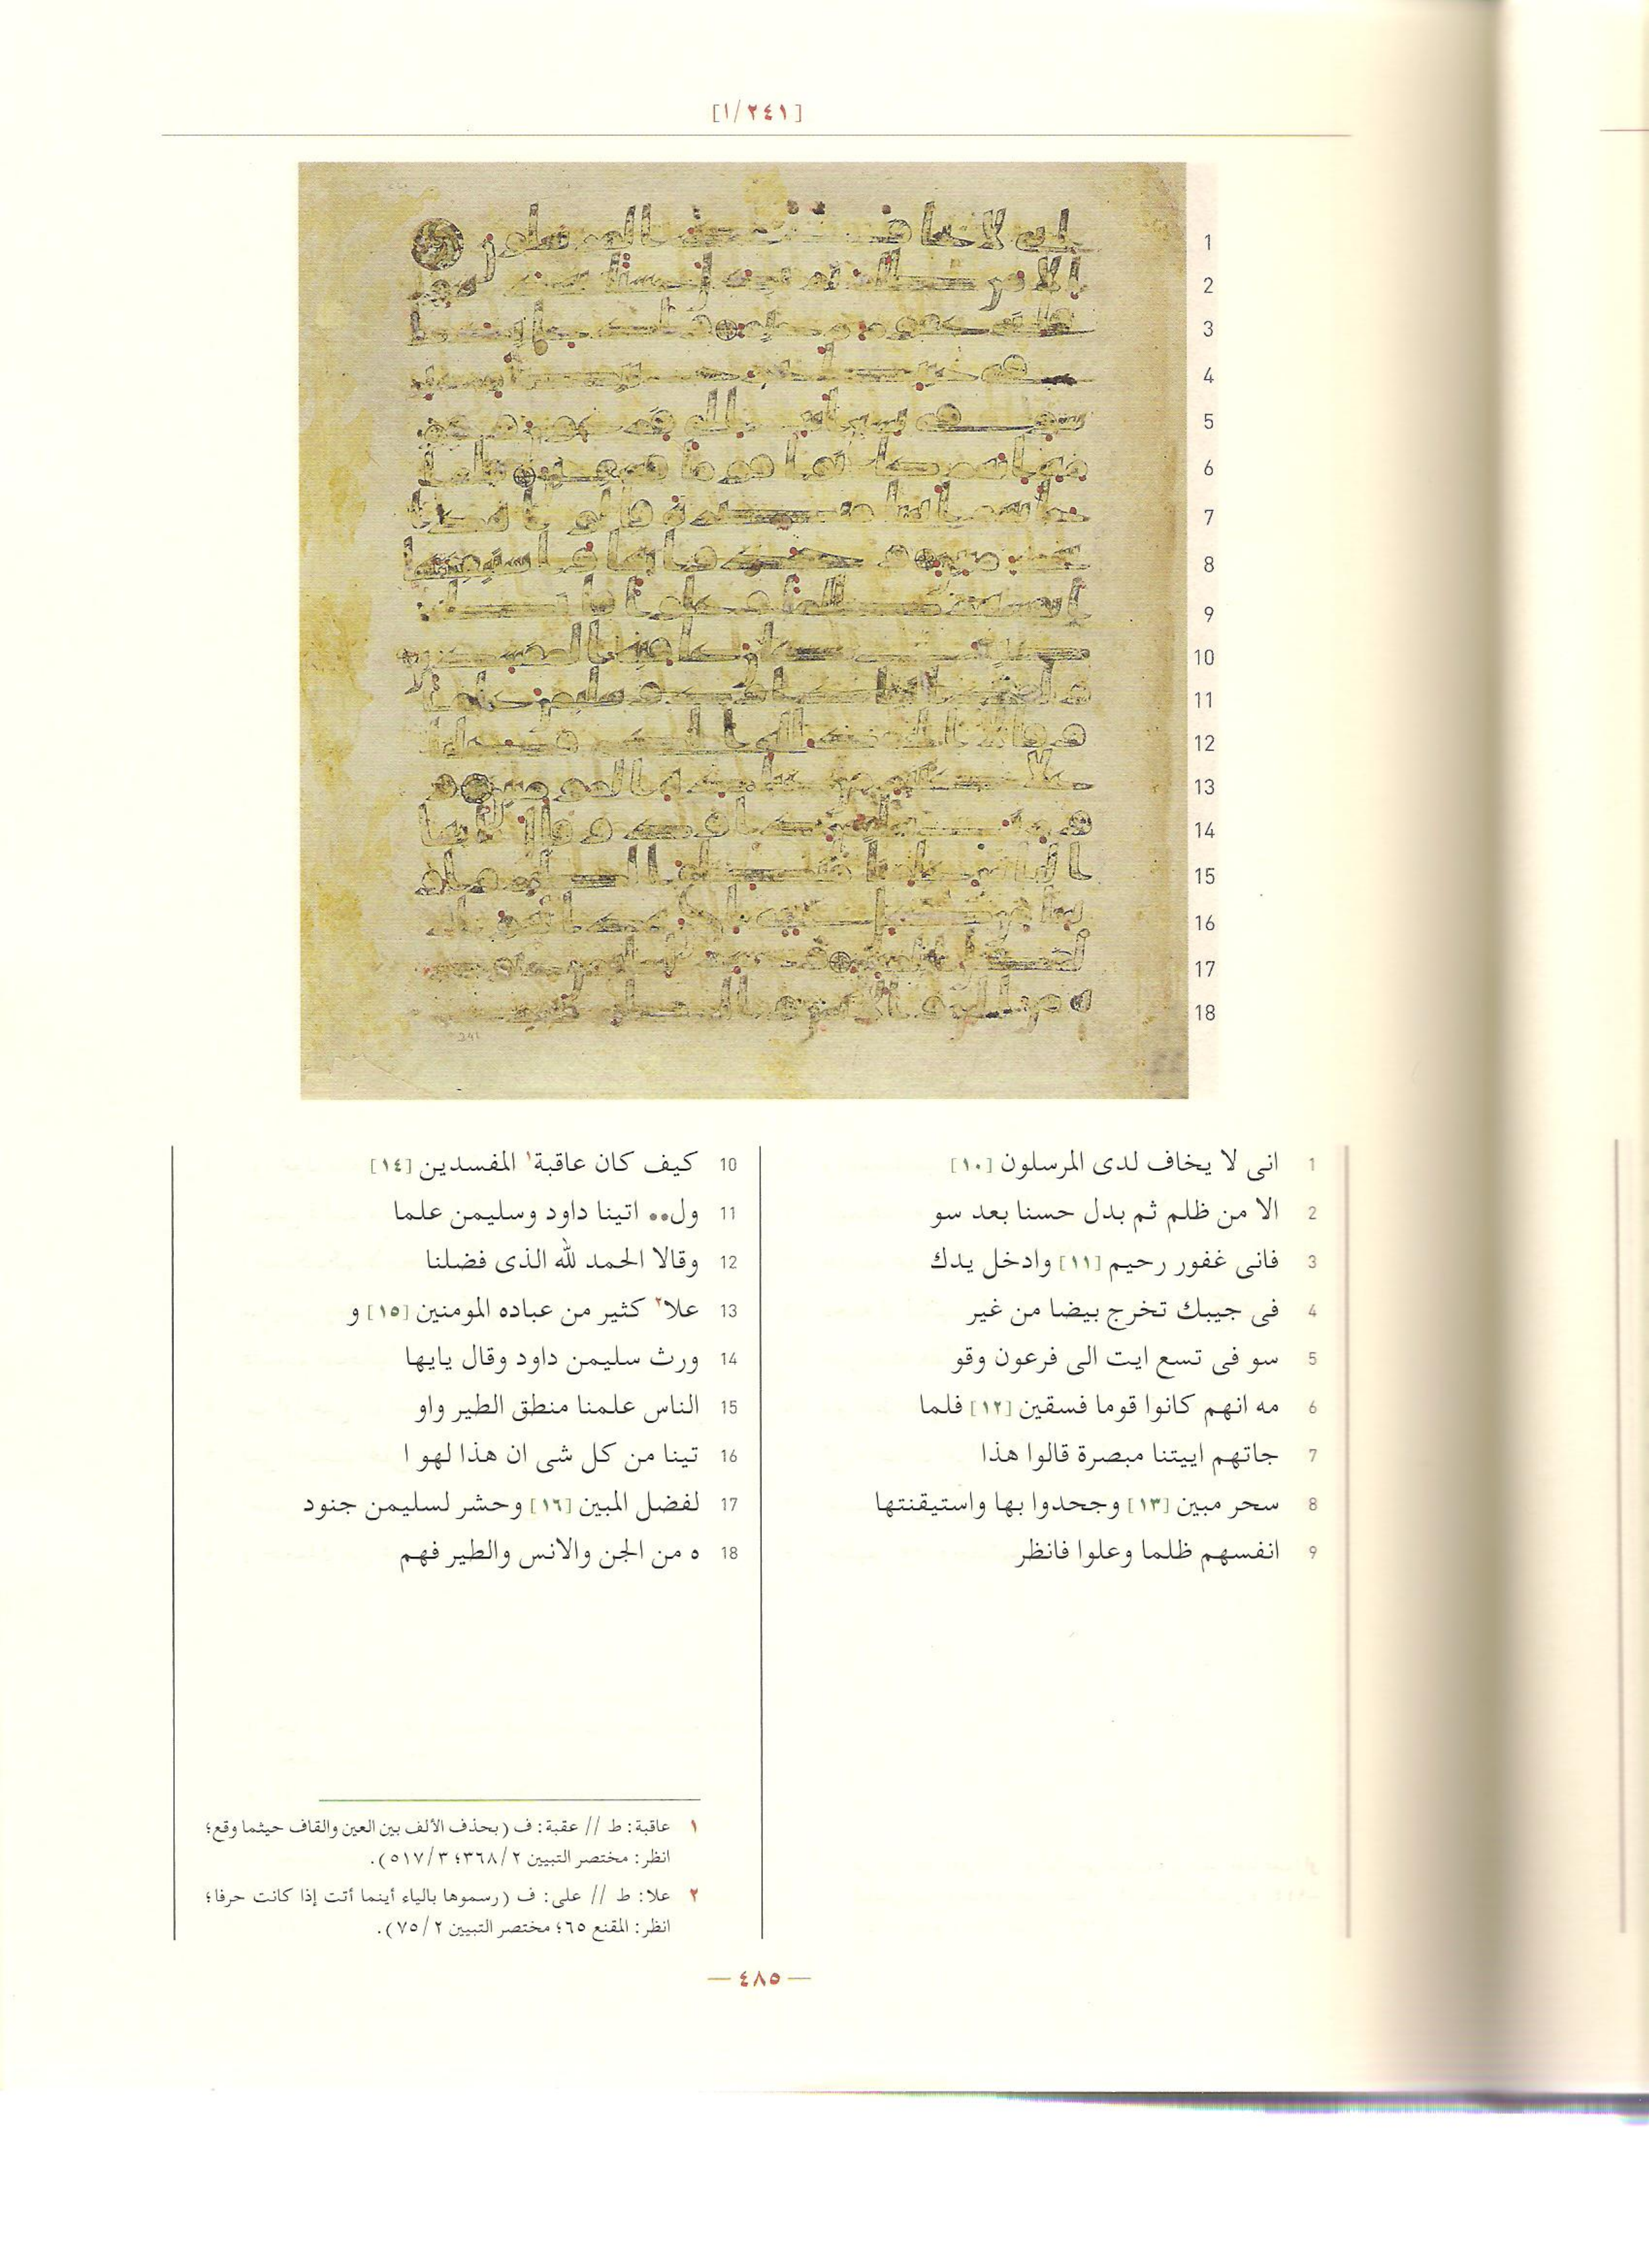 [١/٢٤١]
1 انى لا يخاف لدى المرسلون [١٠]
2 الا من ظلم ثم بدل حسنا بعد سو
3 فانى غفور رحيم [١١] وادخل يدك
4 فى جيبك تخرج بيضا من غير
5 سو فى تسع ايت الى فرعون وقو
6 مه انهم كانوا قوما فسقين [١٢] فلما
7 جاتهم اييتنا مبصرة قالوا هذا
8 سحر مبين [١٣] وجحدوا بها واستيقنتها
9 انفسهم ظلما وعلوا فانظر
10 كيف كان عاقبة١ المفسدين [١٤]
11 ول•• اتينا داود وسليمن علما
12 وقالا الحمد لله الذى فضلنا
13 علا٢ كثير من عباده المومنين [١٥] و
14 ورث سليمن داود وقال يايها
15 الناس علمنا منطق الطير واو
16 تينا من كل شى ان هذا لهو ا
17 لفضل المبين [١٦] وحشر لسليمن جنود
18 ه من الجن والانس والطير فهم
١ عاقبة: ط // عقبة: ف (بحذف الألف بين العين والقاف حيثما وقع؛
انظر: مختصر التبيين ٢/٣٦٨؛ ٣/٥١٧).
٢ علا: ط // على: ف (رسموها بالياء أينما أتت إذا كانت حرفا؛
انظر: المقنع ٦٥؛ مختصر التبيين ٢/٧٥).
— ٤٨٥ —